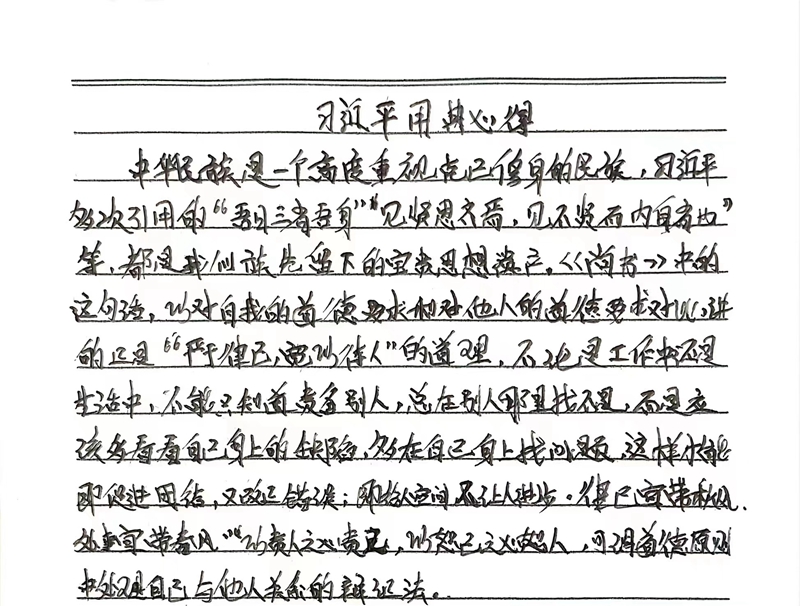 习近平用典心得
中华民族是一个高度重视克己修身的民族，习近平
多次引用的“吾日三省吾身”“见贤思齐焉，见不贤而内自省也”
等，都是我们族先留下的宝贵思想遗产。《尚书》中的
这句话，以对自我的道德要求和对他人的道德要求对比，讲
的正是“严于律己，宽以待人”的道理，不论是工作中还是
生活中，不能只知道责备别人，总在别人那里找不是，而是应
该多看看自己身上的缺陷，多在自己身上找问题，这样做能
即促进团结，又改正错误；即给人空间，又让人进步。律己宜带秋风，
处事宜带春风”“以责人之心责己，以恕己之心恕人，可谓道德原则
中处理自己与他人关系的辩证法。